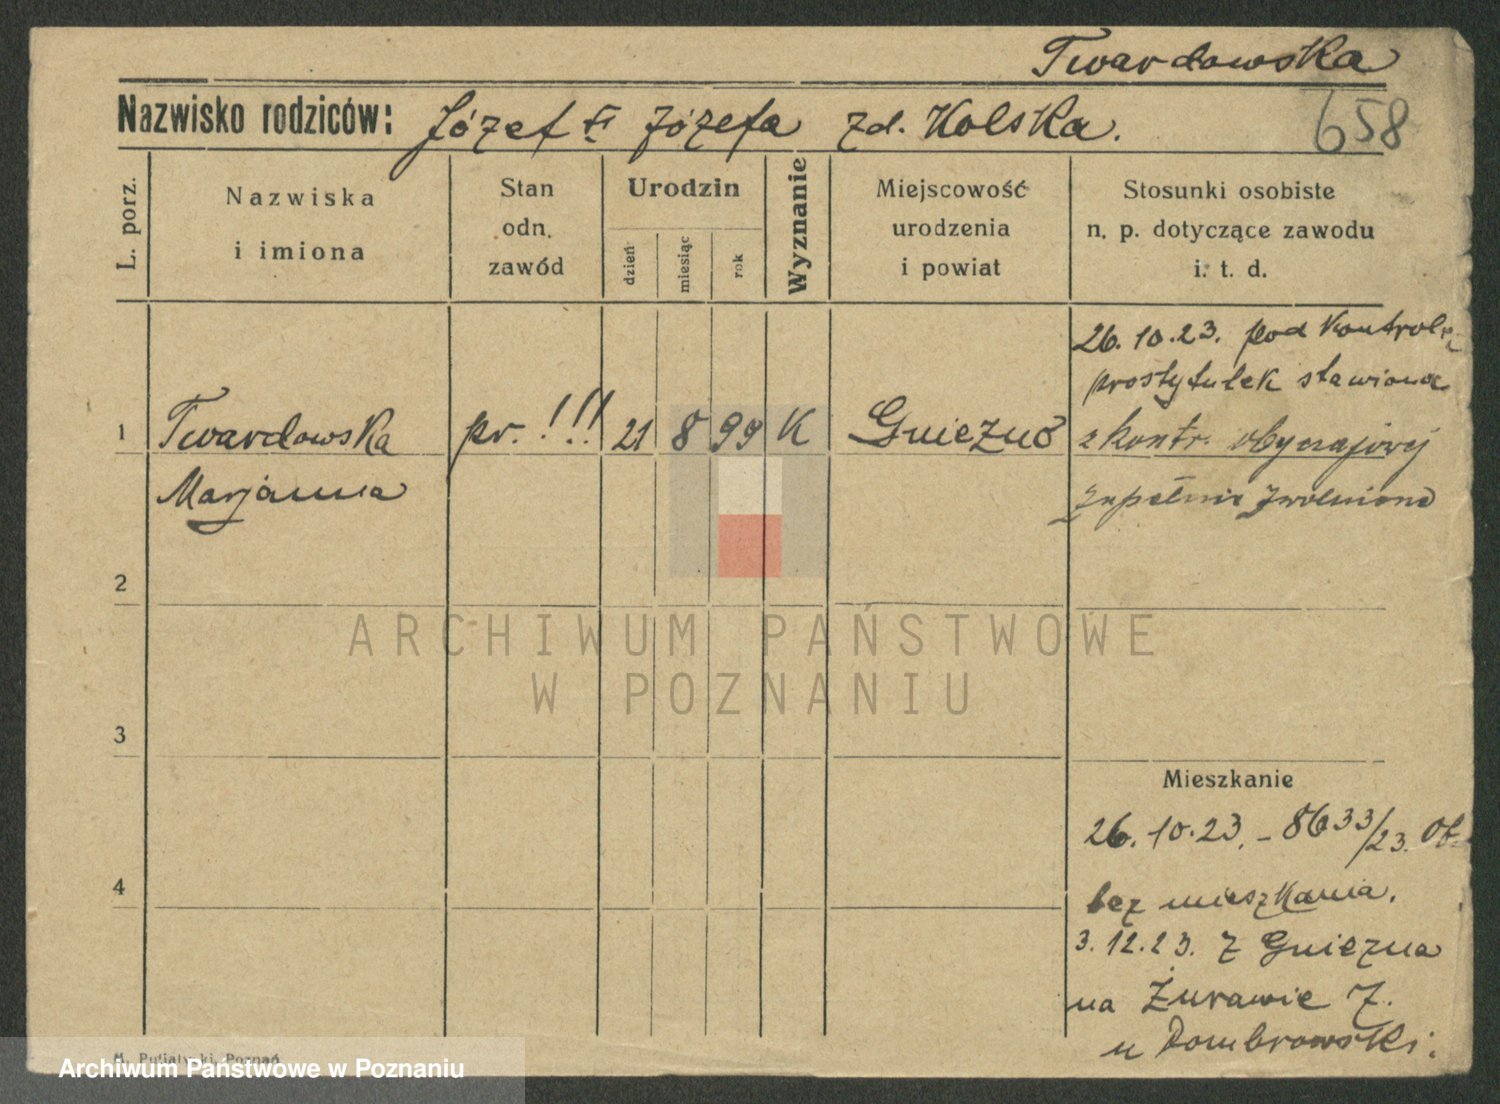 Twardowska
Nazwisko rodziców: Józef Józefa zd. Kolska.
658
L. porz.
Nazwiska
i imiona
Stan
odn.
zawód
Urodzin
dzień
miesiąc
rok
Wyznanie
Miejscowość
urodzenia
i powiat
Stosunki osobiste
n. p. dotyczące zawodu
i. t. d.
26. 10. 23. pod kontrolę
prostytutek stawiona
1 Twardowska pr. !!! 21 8 99 K Gniezno
z kontr. obyczajowej
Marjanna
zupełnie zwolniona
2
ARCHIWUM PAŃSTWOWE
W POZNANIU
3
Mieszkanie
26. 10. 23. - 8633/23.
4
bez mieszkania.
3. 12. 23. z Gniezna
na Żurawie 7.
u Dombrowski.
Poznań
Archiwum Państwowe w Poznaniu